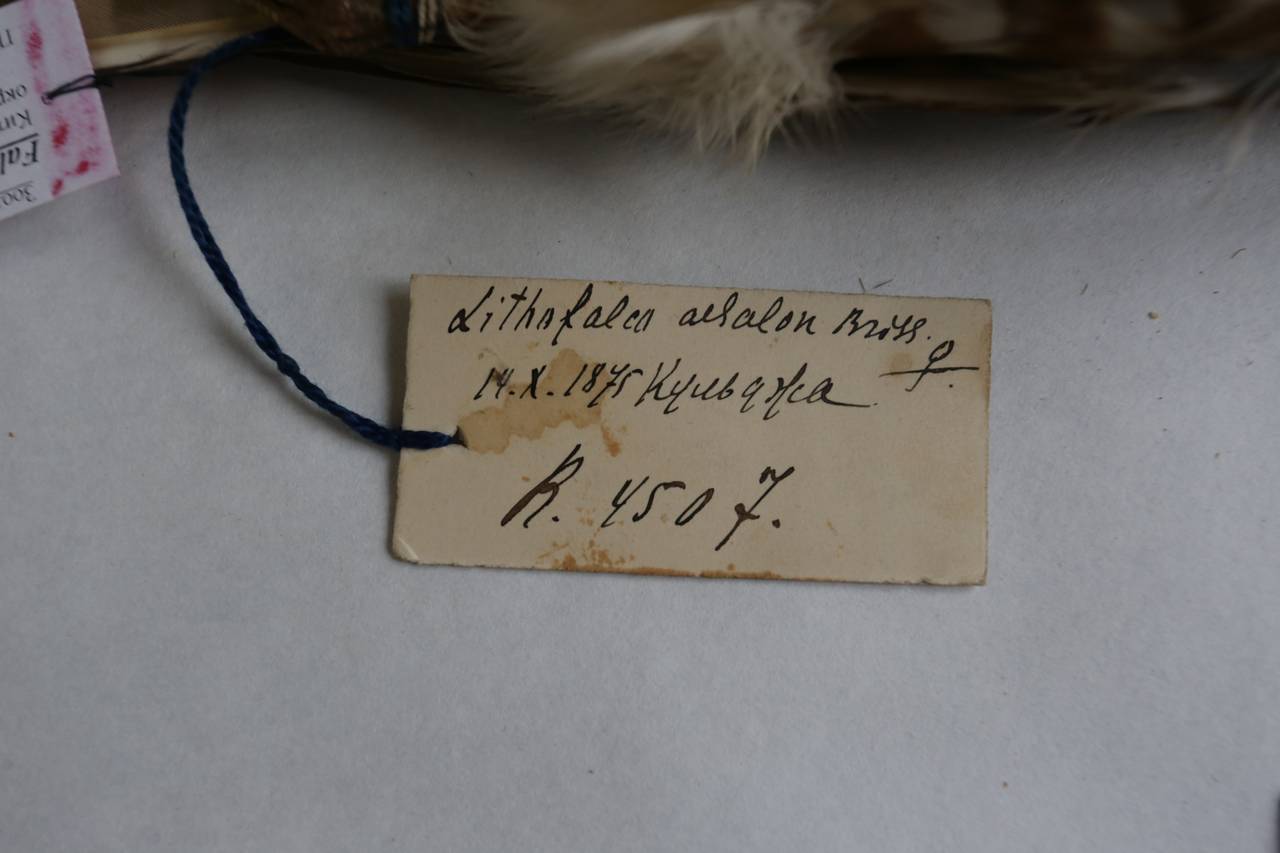 Lithofalco aesalon Briss.
14.X.1875 Кульджа. ♀.
R. 4507.
Зоо
Fal
Кит
окр
П